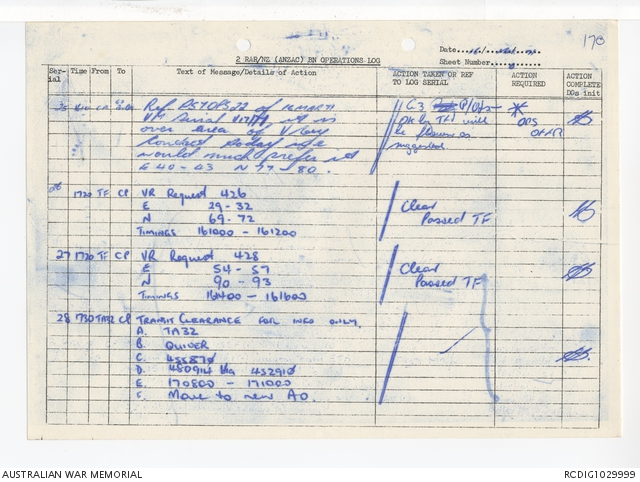 170
2 RAR/NZ (ANZAC) BN OPERATIONS LOG
Date
Sheet Number
Serial Time From To Text of Message/Details of Action ACTION TAKEN OR REF TO LOG SERIAL ACTION REQUIRED ACTION COMPLETE DOs init
Ref
VM Serial it is
over area of
today
would much prefer it
E 40 - 43 N 77 - 80.
G3
will
be flown as
suggested
* OPS
26 1720 TF CP VR Request 426
E 29 - 32
N 69 - 72
TIMINGS 161000 - 161200
Clear
Passed TF
27 1720 TF CP VR Request 428
E 54 - 57
N 90 - 93
TIMINGS 161400 - 161600
Clear
Passed TF
28 1730 TA32 CP TRANSIT CLEARANCE FOR INFO ONLY.
A. TA32
B. QUIVER
C. 455870
D. 480914 452910
E. 170800 - 171000
F. Move to new AO.
AUSTRALIAN WAR MEMORIAL
RCDIG1029999